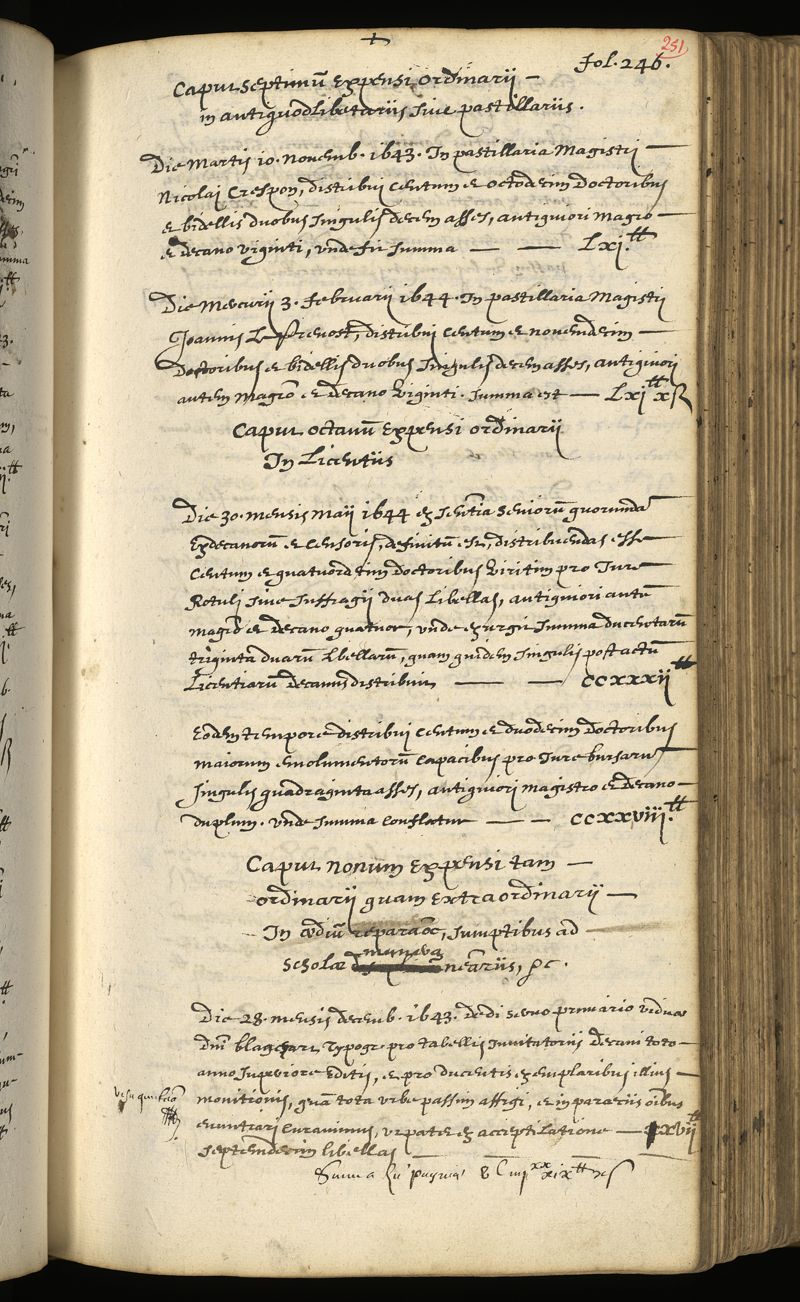 251
fol. 246.
Caput septimū expensi ordinarii —
in antiquodlibetariis sive pastillariis.
Die Martis 10. Novemb. 1643. In pastillaria Magistri —
Nicolai Crespon, distribui centum et octodecim Doctoribus
et bidellis duobus singulis decem asses, antiquiori magrō —
et decano viginti, unde fit summa — — Lxj.tt
Die Mercurii 3. februarii 1644. In pastillaria Magistri
Joannis Le Prevost, distribui centum et novemdecim —
Doctoribus et bidellis duobus singulis decem asses, antiquiori
autem magrō et decano viginti. summa est — Lxj tt x ß
Caput octavū expensi ordinarii
In Licentiis
Die 30. mensis Maii 1644 ex sentētia seniorū quorumdā
Exdecanorū et censoris, definitū est, distribuendas esse
centum et quatuordecim doctoribus viritim pro Jure
Rotuli sive suffragii duas libellas, antiquiori autē
magrō et decano quatuor, unde exurgit summa ducentarū
triginta duarū libellarū, quam quidem singulis post actū
Licentiarū decanus distribuit — — ccxxxii tt
Eodem tempore distribui centum et duodecim doctoribus
maiorum emolumentorū capacibus pro Jure bursarū
singulis quadraginta asses, antiquiori magistro et decano —
duplum. unde summa conflatur — — ccxxviii.tt
Caput nonum expensi tam —
ordinarii quam extraordinarii —
In ædiū reparaōe, sumptibus ad —
munera
scholæ necāriis, &c.
Die 28. mensis decemb. 1643. dedi sexto primario viduæ
Dni blageart Typogr. pro tabellis Invitatoriis decani toto —
anno superiore editis, et pro ducentis exemplaribus illius —
monitionis, quā tota urbe passim affigi, et in parœciis oībus
enuntiari curavimus, ut patet ex acceptilatione — xvii tt
septemdecim libellas —
Summa